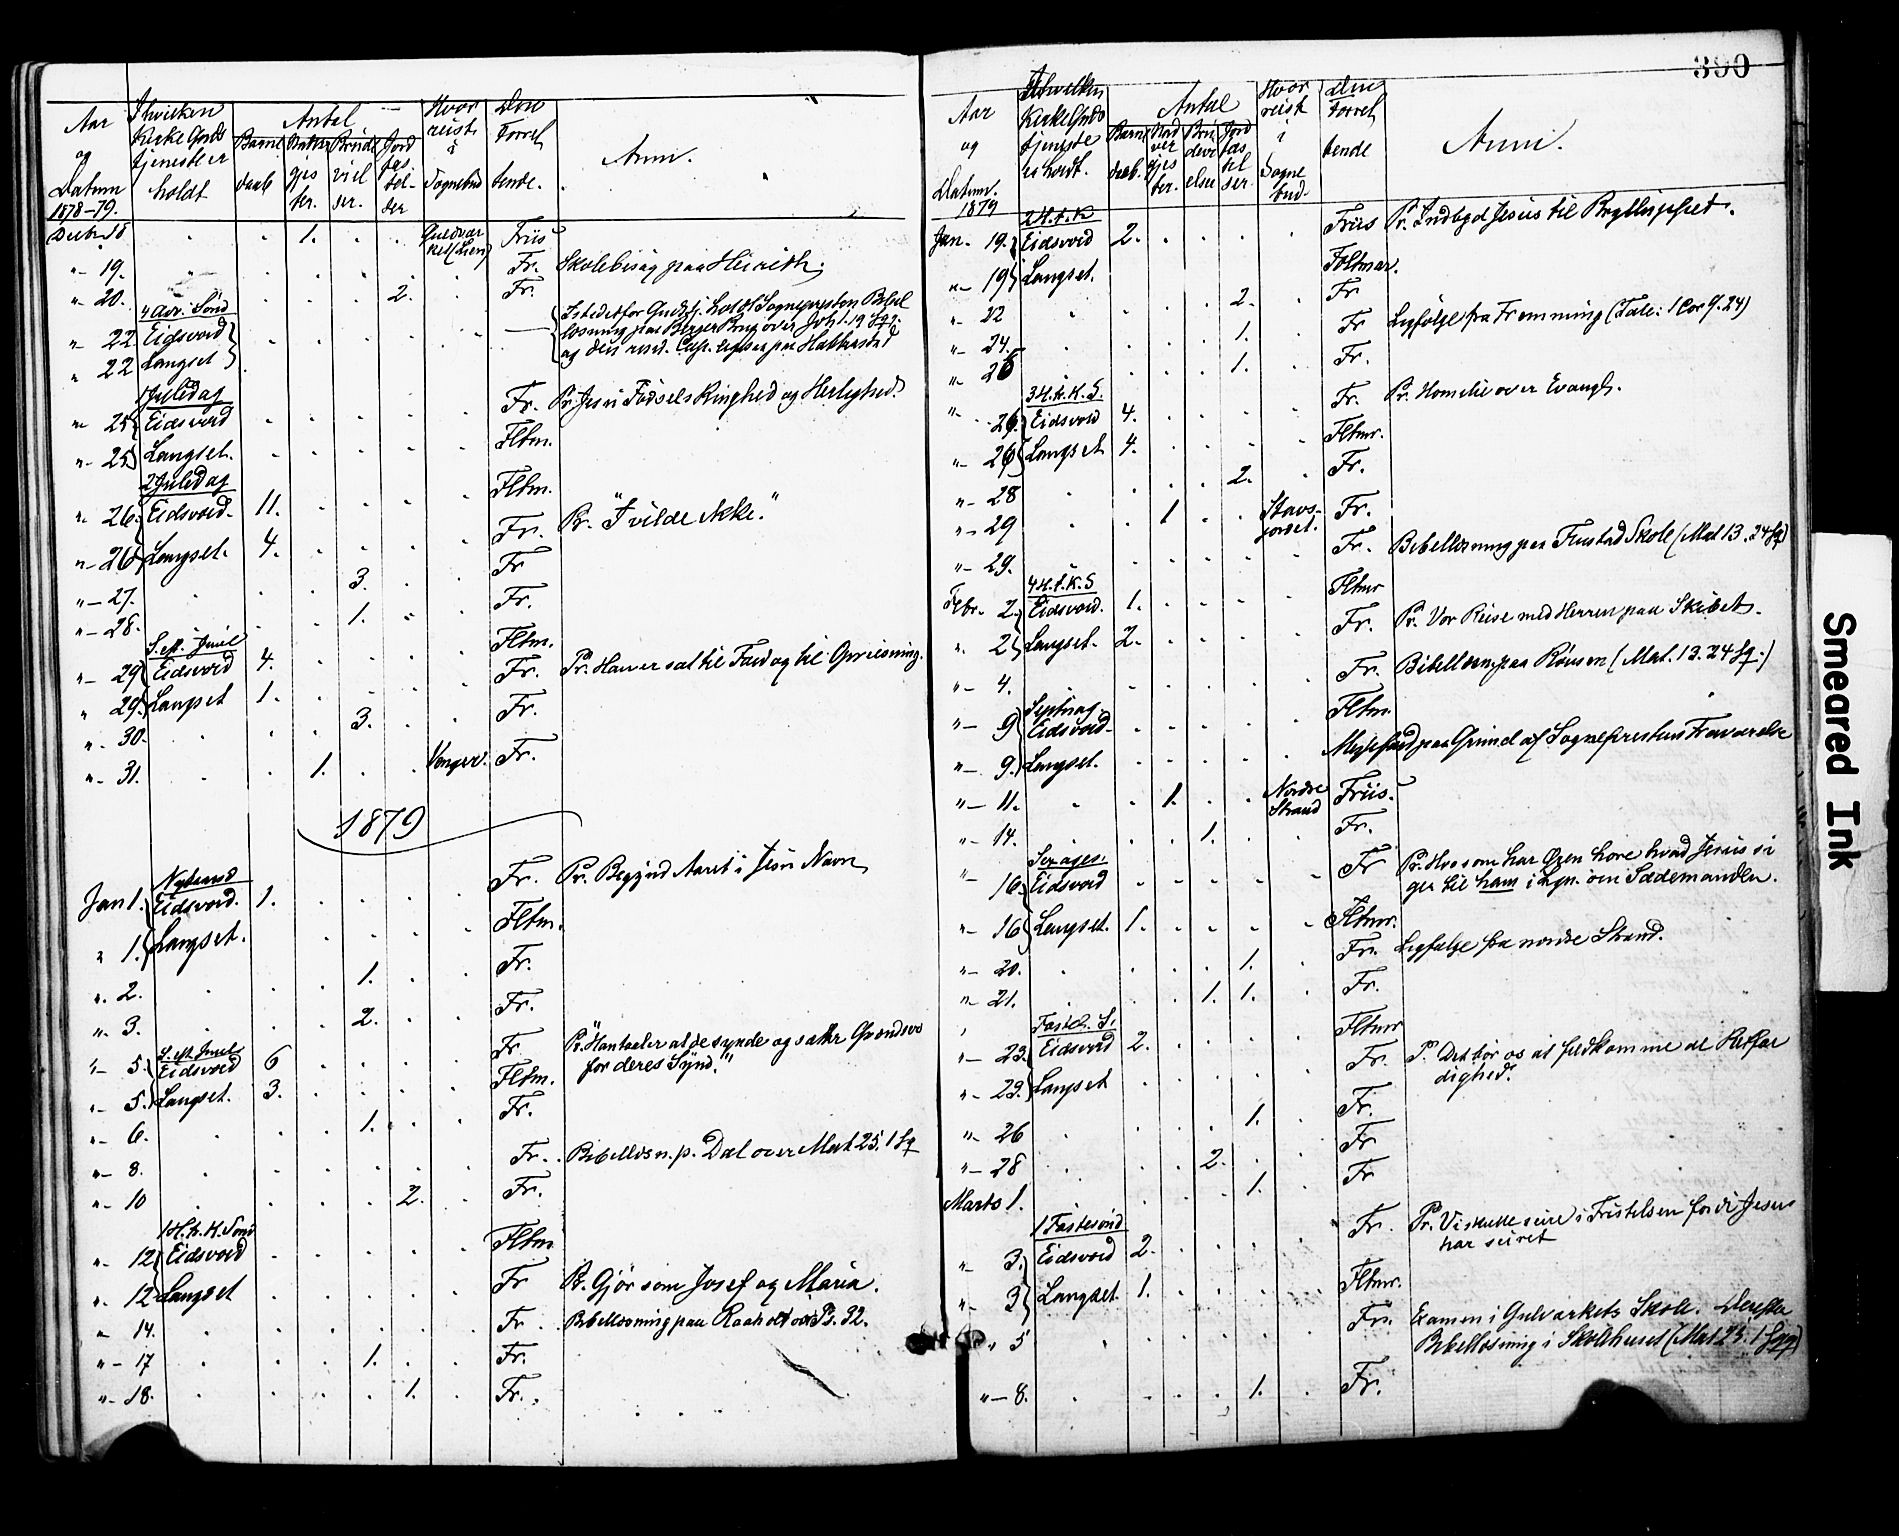 390
Aar og Datum 1878-79. | I hvilken Kirke Gudstjeneste er holdt | Antal | Barnedaab | Brudevielser. | Jordfæstelser | Hvor reist i Sognebud | Den Forrettende. | Anm.
Decbr 18 . . 1. . . Guldverket (Lien) Friis
"- 19. " . . . . . Fr. Skolebesøg paa
"- 20. . . . 2. . Fr.
4 Adv. Sönd
"- 22 Eidsvold
" 22 Langset
Istedetfor Gudstj. holdt Sognepresten Bibel
læsning paa Berger Brug over Joh 1.19 fgg.
og den resid. Cap.
1 Juledag
"- 25 Eidsvold . . . . . Fr. Pr. Jesu Fødsels Ringhed og Herlighed.
"- 25 Langset. . . . . . Fltm.
2 Juledag
"- 26. Eidsvold. 11. . . . . Fltm.
"- 26 Langset. 4. . . . . Fr. Pr. "I vilde ikke."
"- 27. . . . 3. . . Fr
"- 28. . . . 1. . . Fr.
S. eft. Juul
"- 29 Eidsvold 4. . . . . Fltm.
" 29. Langset 1. . . . . Fr. Pr. Han er sat til Fald og til Opreisning.
"- 30. . . . 3. . . Fr.
"- 31. . . 1. . . Fr.
1879
Nytaarsd
Jan 1. Eidsvold. 1. . . . . Fr. Pr. Begynd Aaret i Jesu Navn
" 1. Langset. . . . . . Fltm.
". 2. . . . 1. . . Fr.
". 3. . . . 2. . . Fr.
S. eft. Juul
"- 5. Eidsvold 6 . . . . Fr. for deres Synd."
"- 5. Langset. 3. . . . . Fltm.
"- 6. . . . 1. . . Fr.
"- 8. . . . . . . Fr. . Bibellæsn. p. Dal over Mat 25. 1 fg
"- 10 . . . . 2. . Fr.
1 H. t. K. Sönd
"- 12 Eidsvold . . . . . Fltm
"- 12 Langset . . . . . Fr Pr. Gjör som Josef og Maria.
"- 14. . . . . . . Fr . Bibellæsning paa Raaholt over Ps. 32.
"- 17 . . . 1. . . Fr.
"- 18. . . . . 1. . Fr.
Aar og Datum. 1879 | I hvilken Kirke Gudstjeneste er holdt. | Antal | Barnedaab. | Nadvergjester. | Brudevielser | Jordfæstelser. | Hvor reist i Sognebud | Den Forrettende | Anm.
2 H. t. K
Jan. 19. Eidsvold 2. . . . . Friis Pr. Indbyd Jesus til Bryllupsfest.
"- 19 Langset. Foltmar.
"- 22 . . . . 2. . Fr
"- 24. . . . . 1. . Fr Ligfølge fra (Tale: 1 Cor 9.24)
"- 25 . . . . 1. . Fr.
3 H. t. K. S.
"- 26. Eidsvold 4. . . . . Fr. Pr. Homelie over Evangl.
"- 26 Langset 4. . . . . Fltmr.
"- 28 . . . . 2. . Fr.
"- 29 . . 1 . . Fr.
"- 29. . . . . . . Fr. Bibellæsning paa Skole (Mat 13. 24 fg)
4 H. t. K. S
Febr. 2. Eidsvold. 1. . . . . Fltmr
". 2 Langset. 2. . . . . Fr. Pr. Vor Reise med Herren paa Skibet.
"- 4. . . . . . . Fr. Bibellæsn. paa (Mat. 13. 24 fg.)
Septuag.
"- 9 Eidsvold . . . . . Fltm.
"- 9. Langset. . . . . . Messefald paa Grund af Sognepresten Fraværelse
"- 11. . . 1. . . Nordre Strand Friis.
"- 14. . . . 1. . . Fr.
Sexages.
"- 16. Eidsvold - - - - - Fr Pr. Hvo som har Øren høre hvad Jesus si
ger til ham i Lgn. om Sædemanden.
"- 16 Langset. 1. . . . . Fltmr.
"- 20. . . . . 1. . Fr. Ligfølge fra nordre Strand.
"- 21. . . . 1. 1. . Fr.
Fastel. S.
"- 23. Eidsvold 2. . . . . Fltmr
"- 23. Langset . . . . . Fr. P. Det bör os at fuldkomme al Retfær
dighed.
"- 26 . . . . 1. . Fr.
"- 28 . . . 2. . . Fr
Marts 1. . . . . 1. . Fr
1 Fastesönd
"- 3. Eidsvold 2. . . . . Fr. Pr. Vi skulle seire i Fristelsen fordi Jesus
har seiret
"- 3 Langset. 1. . . . . Fltmr.
". 5 . . . . . . Fr. Examen i Gulverkets Skole. Derefter
Bibellæsning i Skolehuset (Mat 25. 1 fgg)
"- 8. . . . . 1. . Fr.
Smeared Ink